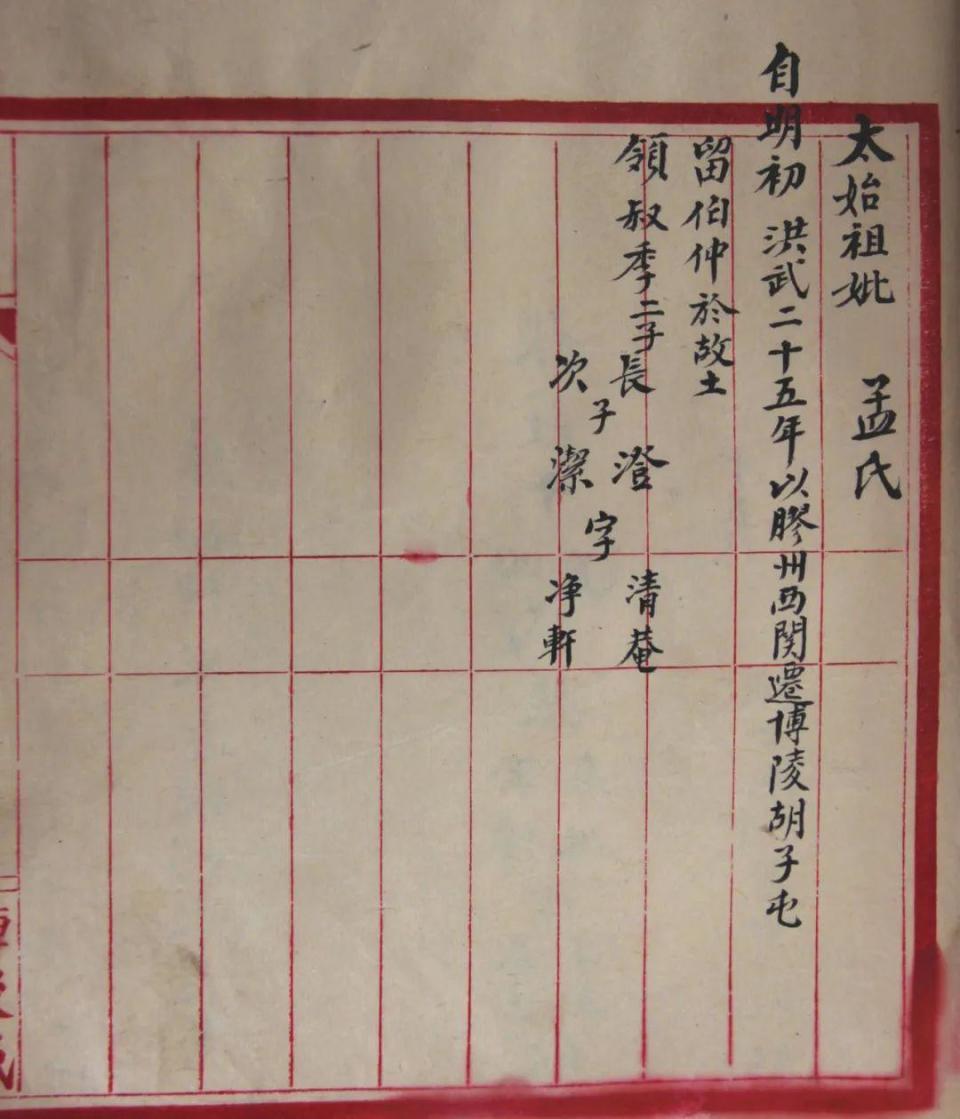 太始祖妣 孟氏
自明初 洪武二十五年以膠州西関遷博陵胡子屯
留伯仲於故土
領叔季二子長子澄字清菴
次子潔字净軒